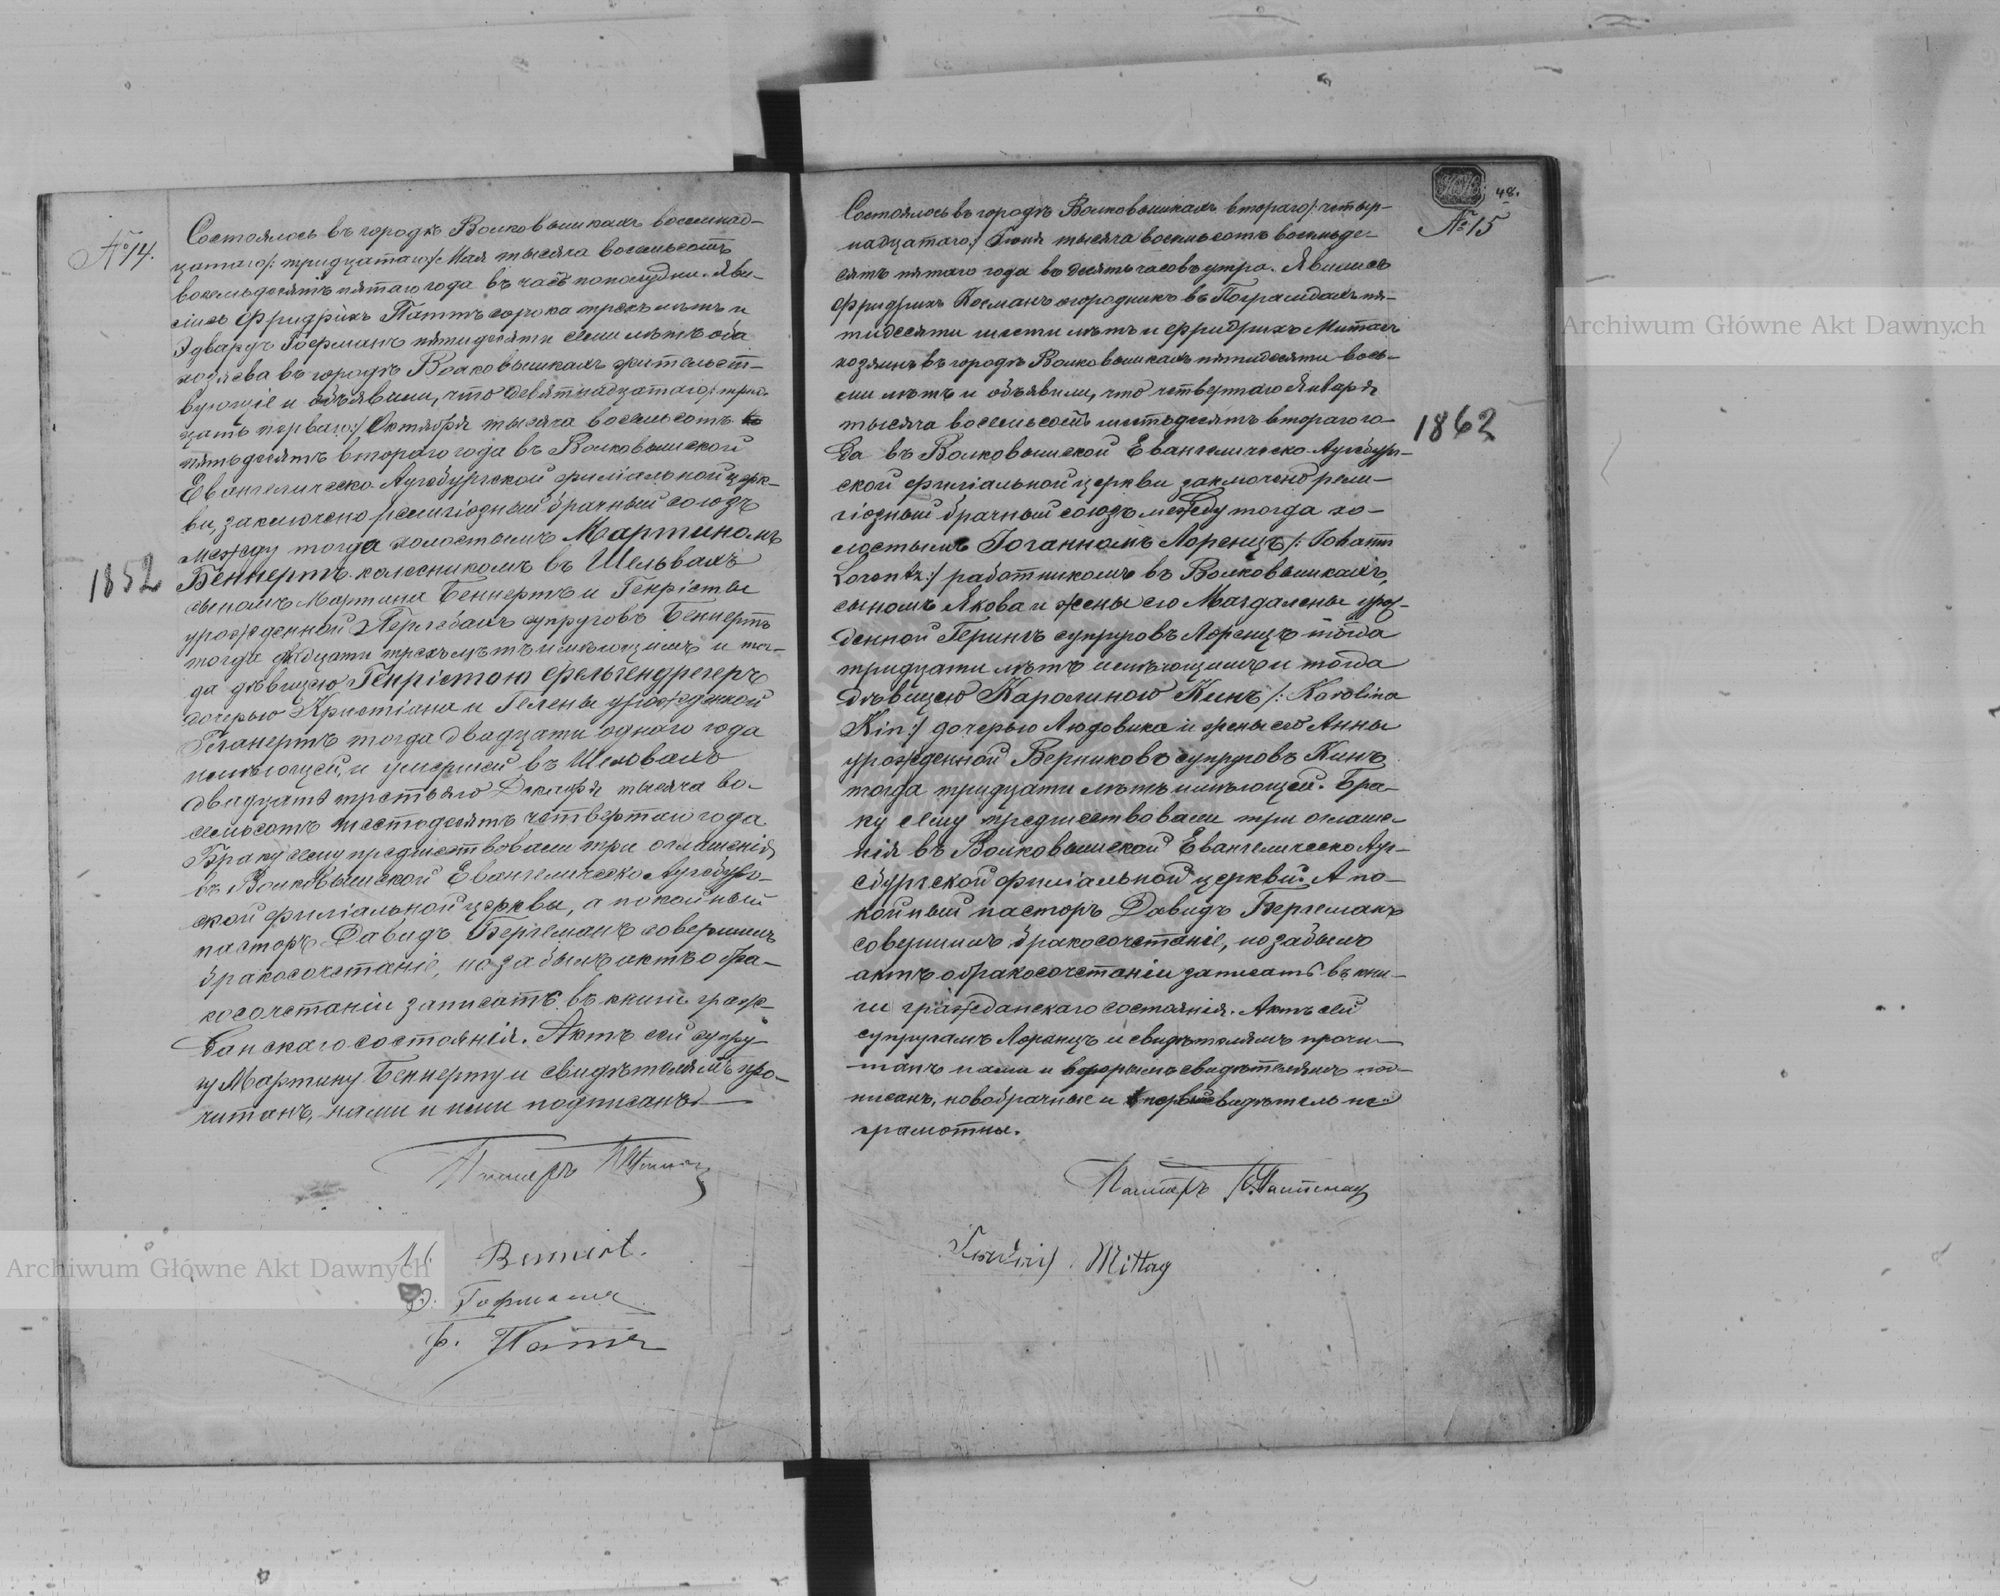 № 14.
Состоялось въ городѣ Волковышкахъ восемнад-
цатаго /: тридцатаго :/ Мая тысяча восемьсотъ
восемьдесятъ пятаго года въ часъ пополудни. Яви-
лись Фридрихъ Паттъ сорока трехъ лѣтъ и
Эдвардъ Гофманъ пятидесяти семи лѣтъ оба
хозяева въ городѣ Волковышкахъ жительст-
вующіе и объявили, что девятнадцатаго /: трид-
цать перваго :/ Октября тысяча восемьсотъ
пятьдесятъ втораго года въ Волковышской
Евангелическо Аугсбургской филіальной церк-
ви, заключено религіозный брачный союзъ
между тогда холостымъ Мартиномъ
1852
Беннертъ колесникомъ въ Шельвахъ
сыномъ Мартина Беннертъ и Генріеты
урожденной супруговъ Беннертъ
тогда двадцати трехъ лѣтъ имѣющимъ и тог-
да дѣвицею Генріетою Фельгендрегеръ
дочерью Христіана и Гелены урожденной
тогда двадцати одного года
имѣющей, и умершей въ Шельвахъ
двадцать третьяго Декабря тысяча во-
семьсотъ шестьдесятъ четвертаго года
Браку сему предшествовали три оглашенія
въ Волковышской Евангелическо Аугсбург-
ской филіальной церквы, а покойный
пасторъ Давидъ Бергеманъ совершилъ
бракосочетаніе, но забылъ актъ о бра-
косочетаніи записать въ книги граж-
данскаго состоянія. Актъ сей супру-
гу Мартину Беннерту и свидѣтелямъ про-
читанъ, нами и ими подписанъ.
Пасторъ
M. Bennert.
Э. Гофманъ
Ф. Патъ
48.
№ 15
Состоялось въ городѣ Волковышкахъ втораго /: четыр-
надцатаго :/ Іюня тысяча восемьсотъ восемьде-
сятъ пятаго года въ десять часовъ утра. Явились
Фридрихъ Косманъ огородникъ въ Пограмдахъ пя-
тидесяти шести лѣтъ и Фридрихъ Митагъ
хозяинъ въ городѣ Волковышкахъ пятидесяти вось-
ми лѣтъ и объявили, что четвертаго Января
тысяча восемьсотъ шестьдесятъ втораго го-
1862
да въ Волковышской Евангелическо Аугсбург-
ской филіальной церкви заключенъ рели-
гіозный брачный союзъ между тогда хо-
лостымъ Іоганномъ Лоренцъ /: Johann
Lorentz :/ работникомъ въ Волковышкахъ,
сыномъ Якова и жены его Магдалены урож-
денной Герингъ супруговъ Лоренцъ тогда
тридцати лѣтъ имѣющимъ и тогда
дѣвицею Каролиною Кинъ /: Karolina
Kin :/ дочерью Людовика и жены его Анны
урожденной Верниковъ супруговъ Кинъ
тогда тридцати лѣтъ имѣющей. Бра-
ку сему предшествовали три оглаше-
нія въ Волковышской Евангелическо Ауг-
сбургской филіальной церкви. А по-
койный пасторъ Давидъ Бергеманъ
совершилъ бракосочетаніе, но забылъ
актъ о бракосочетаніи записать въ кни-
ги гражданскаго состоянія. Актъ сей
супругамъ Лоренцъ и свидѣтелямъ прочи-
танъ нами и вторымъ свидѣтелямъ под-
писанъ, новобрачные и первый свидѣтель не-
грамотны.
Пасторъ
Friedrich Mittag
Archiwum Główne Akt Dawnych
Archiwum Główne Akt Dawnych